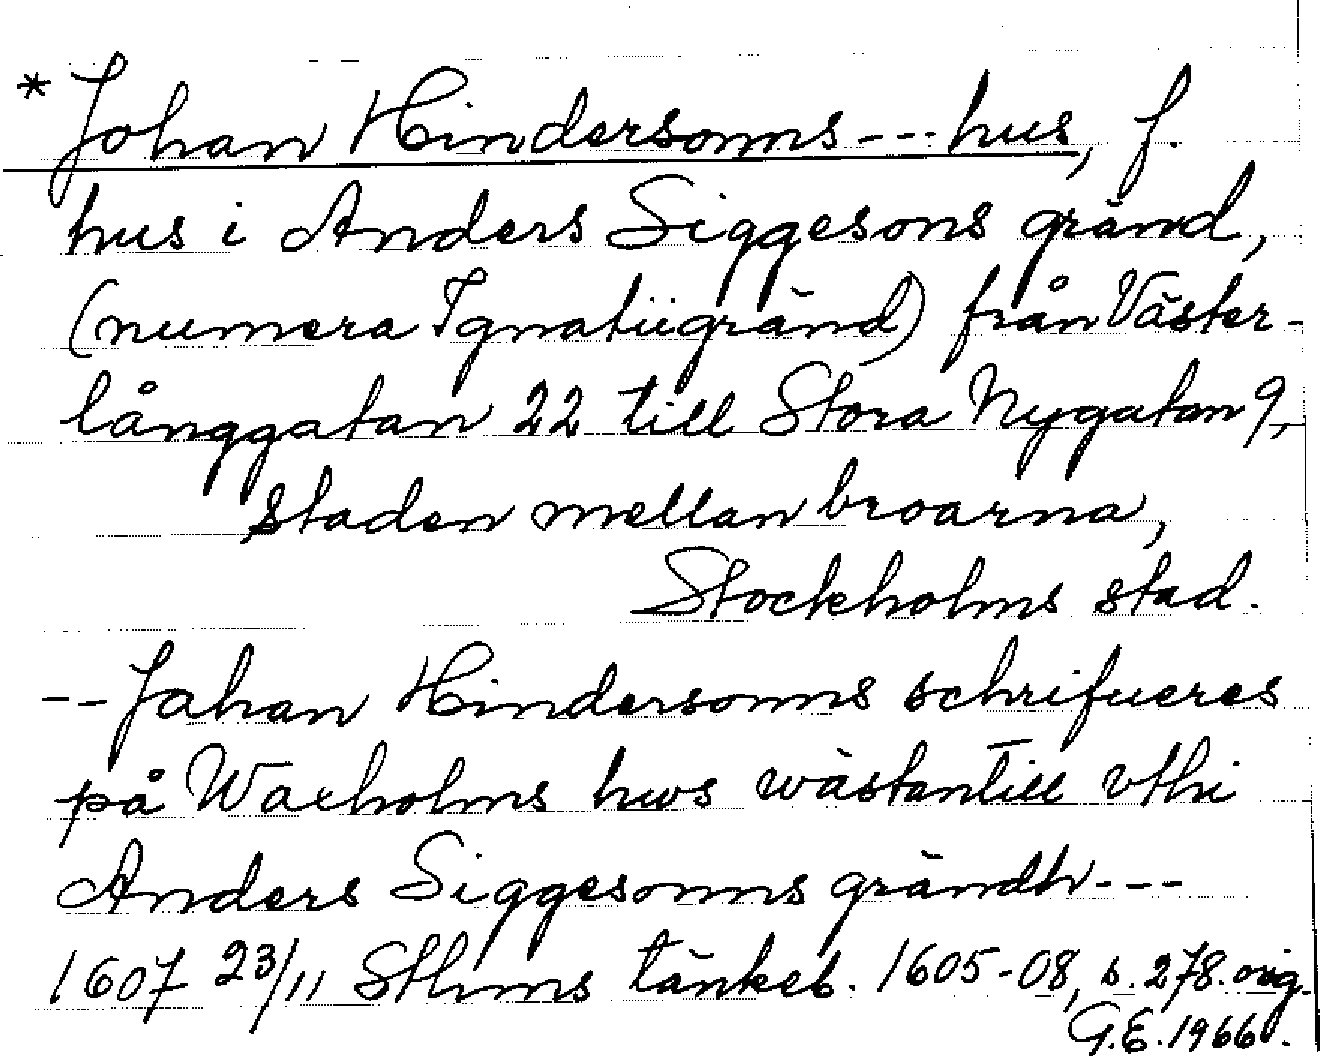 * Johan Hindersonns --- hus, f.
hus i Anders Siggesons gränd,
(numera Ignatiigränd) från Väster-
långgatan 22 till Stora Nygatan 9,
staden mellan broarna,
Stockholms stad.
-- Johan Hindersonns schrifueres
på Waxholms hws wästantill vthi
Anders Siggesonns grändh ---
1607 23/11 Sthms tänkeb. 1605-08, s. 278. orig.
G.E. 1966.